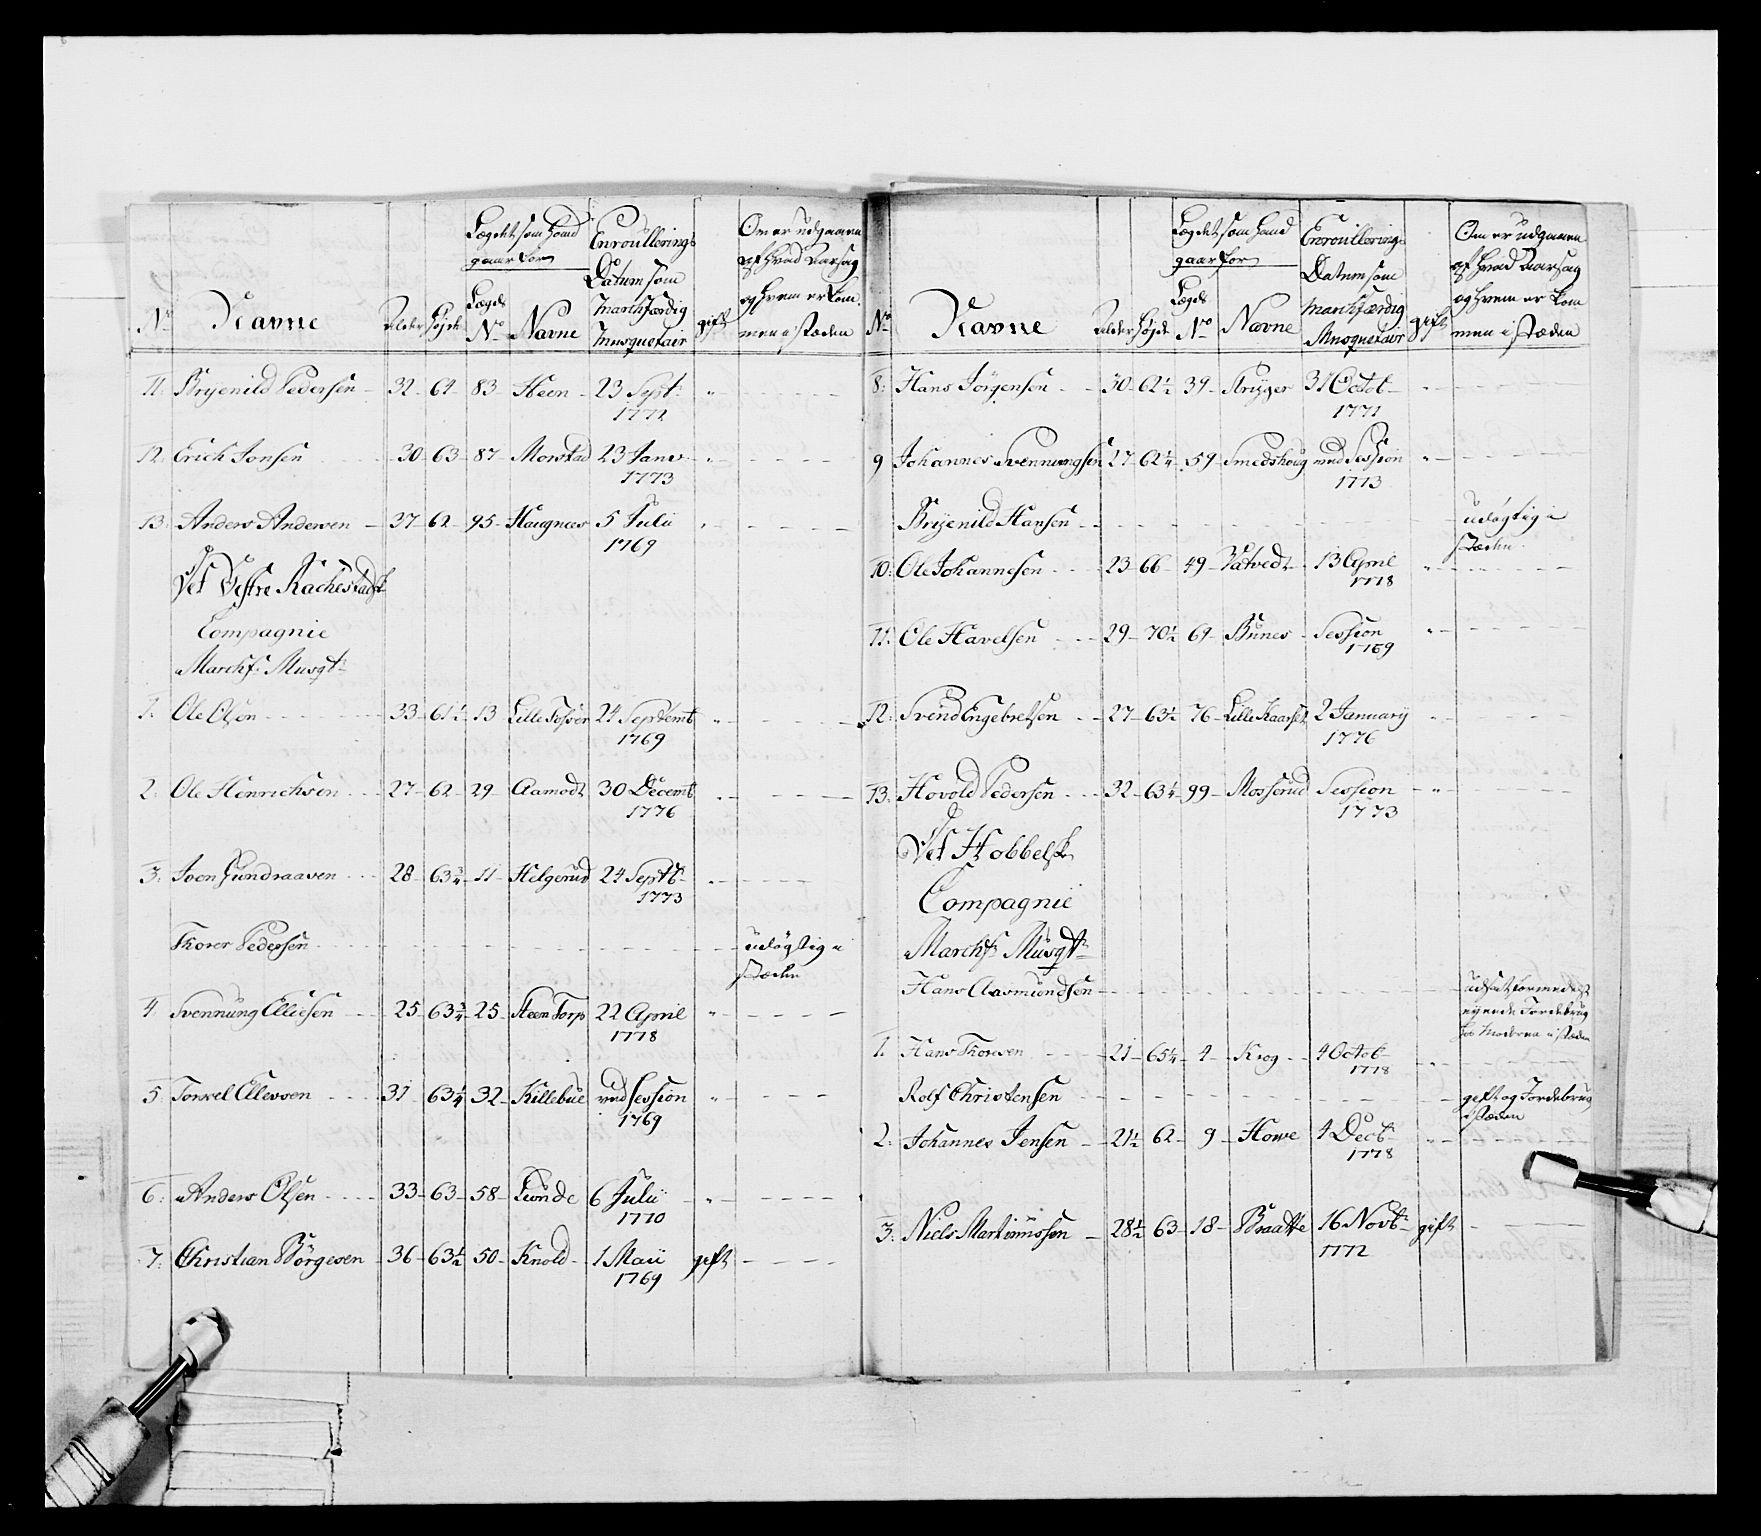 No Navne Alder Højde Lægdet som hand gaar for Lægds No Navne Enroullerings Datum som marchfærdig Musquetair gift Om er udgaaen af hvad Aarsag og hvem er kommen i stæden
11. Bryenild Pedersen 32 64 83 Heen 23 Sept.
1772
12. Erich Jonsen 30 63 87 Morstad 23 Janv.
1773
13. Anders Andersen 37 62 95 Haugnæs 5 Julii
1769
Det Vestre Rachestadsk.
Compagnie
Marchf. Musqt.
1. Ole Olsen 33 61½ 13 Lille 24 Septemb.
1769
2. Ole Henrichsen 27 62 29 Aamodt 30 Decemb.
1776
3. Iven Gundraaven 28 63¾ 11 Helgerud 24 Septb.
1773
Thorer Pedersen udøgtig i
stæden
4. Svennung Elliesen 25 63¾ 25 Heen Torp 22 April
1778
5 Torkel Ellevsen 31 63¼ 32 Killebue ved Session
1769
6. Anders Olsen 33 63 58 Lunde 6 Julii
1770
7. Christian Børgesen 36 63½ 50 Knold 1 Maii gift
1769
No Navne Alder Højde Lægdet som hand gaar for Lægds No Navne Enroullerings Datum som marchfærdig Musquetair gift Om er udgaaen af hvad Aarsag og hvem er kommen i stæden
8. Hans Jörgensen 30 62½ 39 Stryger 31 Octob.
1771
9 Johannes Svennungsen 27 62¼ 59 Smedshoug ved Session
1773
Bryenild Hansen udøgtig i
stæden
10. Ole Johannesen 23 66 49 Tatvedt 13 April
1778
11. Ole Havelsen 29 70½ 69 Bunes Session
1769
12. Svend Engebretsen 27 63½ 76 Lille Kaarset 2 January
1776
13. Hovold Pedersen 32 63¼ 99 Mosserud Session
1773
Det Hobbelsk.
Compagnie
Marchf. Musqt.
Hans Aasmundsen udsat formedelst
eyende Jordebrug
hos Moderen i stæden
1. Hans Thorsen 21 65¼ 4 Krog 4 Octob.
1778
Rolf Christensen gift og Jordebrug
i stæden
2. Johannes Jensen 21½ 62 9 Howe 4 Decb.
1778
3. Niels Martinussen 28½ 63 18 Braatte 16 Novb. gift
1772